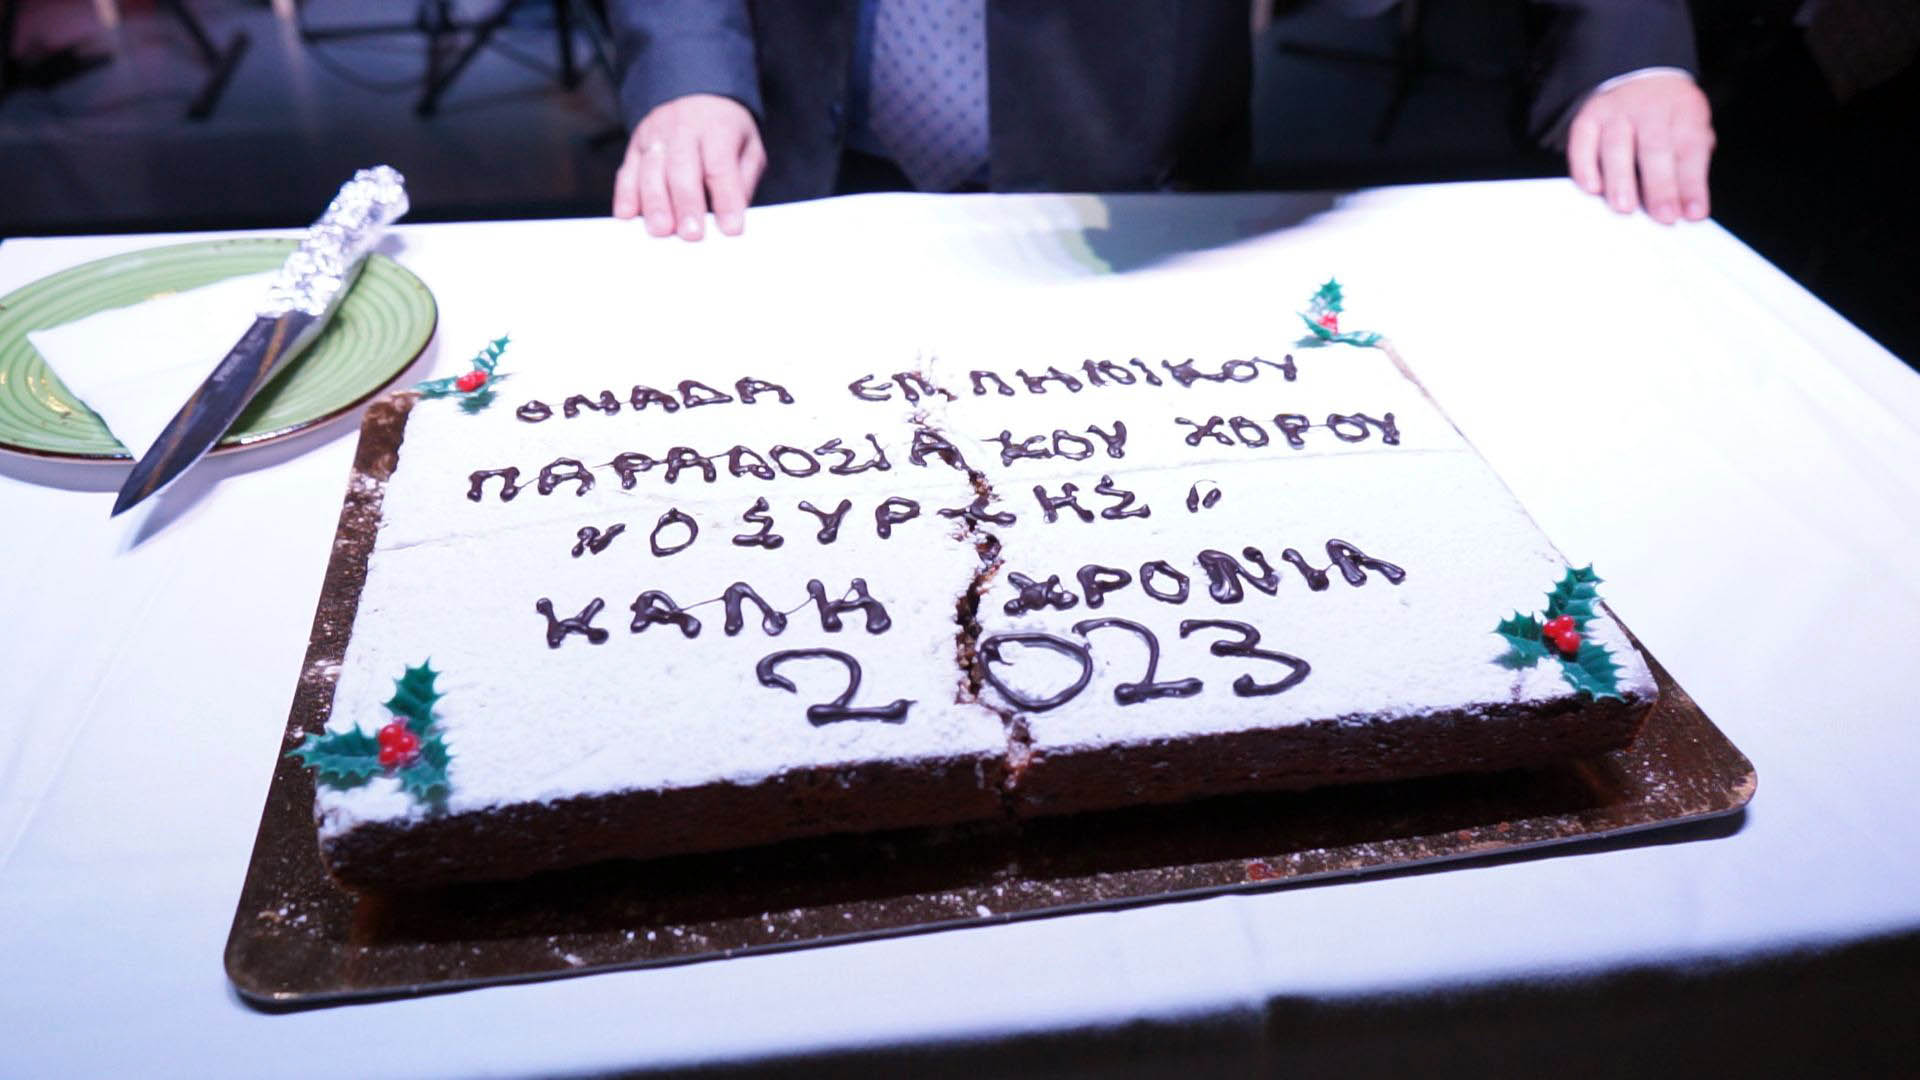 ΟΜΑΔΑ ΕΛΛΗΝΙΚΟΥ
ΠΑΡΑΔΟΣΙΑΚΟΥ ΧΟΡΟΥ
"Ο ΣΥΡΤΗΣ"
ΚΑΛΗ ΧΡΟΝΙΑ
2023